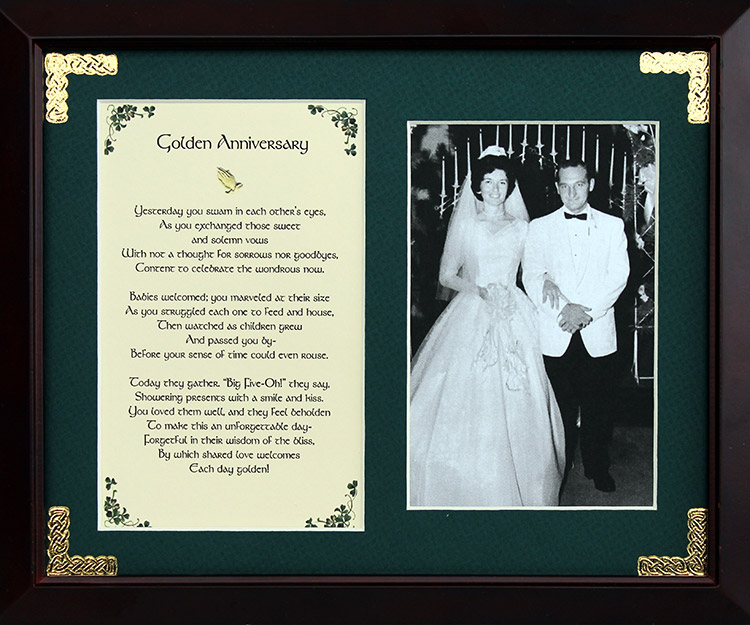 Golden Anniversary
Yesterday you swam in each other's eyes,
As you exchanged those sweet
and solemn vows
With not a thought for sorrows nor goodbyes,
Content to celebrate the wondrous now.
Babies welcomed; you marveled at their size
As you struggled each one to feed and house,
Then watched as children grew
And passed you by-
Before your sense of time could even rouse.
Today they gather. "Big Five-Oh!" they say,
Showering presents with a smile and kiss.
You loved them well, and they feel beholden
To make this an unforgettable day-
Forgetful in their wisdom of the bliss,
By which shared love welcomes
Each day golden!